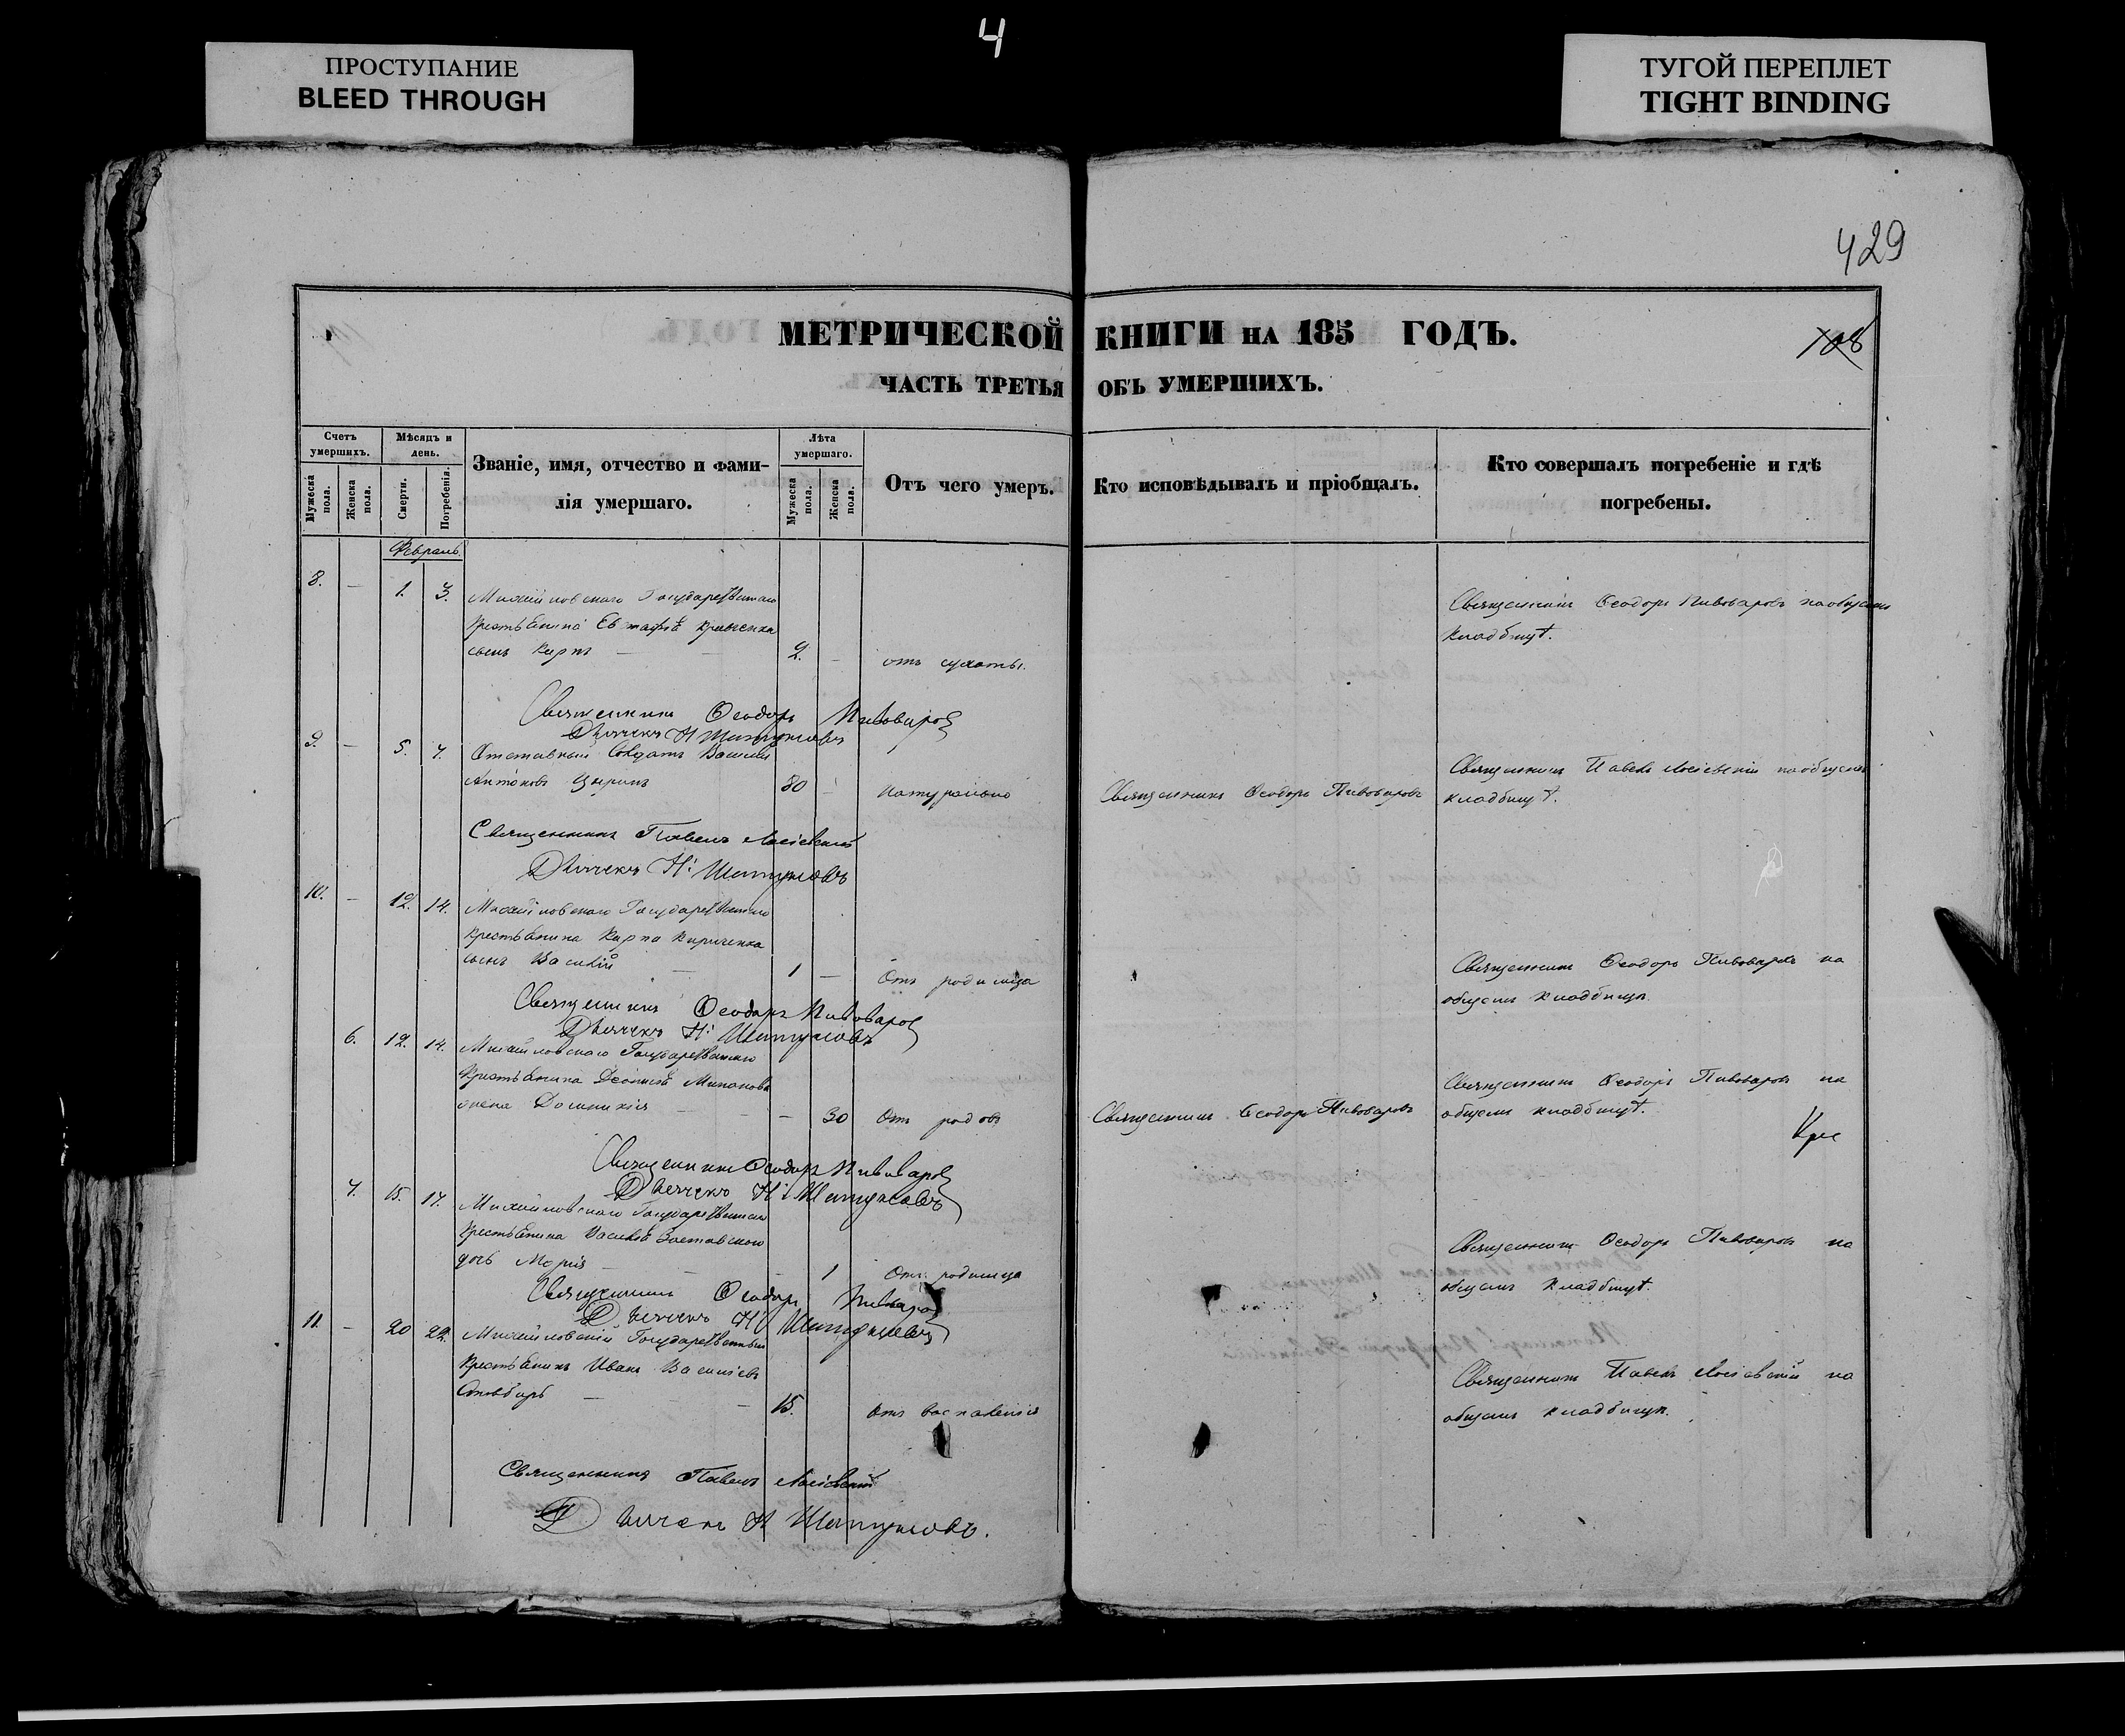 4
ПРОСТУПАНИЕ
BLEED THROUGH
ТУГОЙ ПЕРЕПЛЕТ
TIGHT BINDING
429
МЕТРИЧЕСКОЙ КНИГИ НА 185 ГОДЪ.
108
ЧАСТЬ ТРЕТЬЯ ОБЪ УМЕРШИХЪ.
Счетъ умершихъ.
Мужеска пола.
Женска пола.
Мѣсяцъ и день.
Смерти.
Погребенія.
Званіе, имя, отчество и фами-
лія умершаго.
Лѣта умершаго.
Мужеска пола.
Женска пола.
Отъ чего умеръ.
Кто исповѣдывалъ и пріобщалъ.
Кто совершалъ погребеніе и гдѣ
погребены.
Февраль
8. – 1. 3. Михайловскаго Государственнаго
Крестьянина Евстафія Кравченка
сынъ Карпъ – 2. – отъ сухоты.
Священникъ Ѳеодоръ Пивоваровъ на общемъ
кладбищѣ.
Священникъ Ѳеодоръ Пивоваровъ
Дьячекъ Н Шапуновъ
9. – 5. 7. Отставный Солдатъ Василій
Антоновъ 80 – натурально
Священникъ Ѳеодоръ Пивоваровъ
Священникъ Павелъ на общемъ
кладбищѣ.
Священникъ Павелъ
Дьячекъ Н: Шапуновъ
10. – 12. 14. Михайловскаго Государственнаго
крестьянина Карпа Кириченка
сынъ Василій – 1 – Отъ родимца
Священникъ Ѳеодоръ Пивоваровъ на
общемъ кладбищѣ.
Священникъ Ѳеодоръ Пивоваровъ
Дьячекъ Н: Шапуновъ
6. 12. 14. Михайловскаго Государственнаго
Крестьянина Леонтія Миронова
жена Домникія – – 30 Отъ родовъ
Священникъ Ѳеодоръ Пивоваровъ
Священникъ Ѳеодоръ Пивоваровъ на
общемъ кладбищѣ.
Священникъ Ѳеодоръ Пивоваровъ
Дьячекъ Н: Шапуновъ
7. 15. 17. Михайловскаго Государственнаго
Крестьянина Василія Заставскаго
дочь Марія – – 1 Отъ родимца
Священникъ Ѳеодоръ Пивоваровъ на
общемъ кладбищѣ.
Священникъ Ѳеодоръ Пивоваровъ
Дьячекъ Н: Шапуновъ
11. – 20 22. Михайловскій Государственный
Крестьянинъ Иванъ Васильевъ
– – 15. Отъ воспаленія
Священникъ Павелъ на
общемъ кладбищѣ.
Священникъ Павелъ
Дьячекъ Н Шапуновъ.